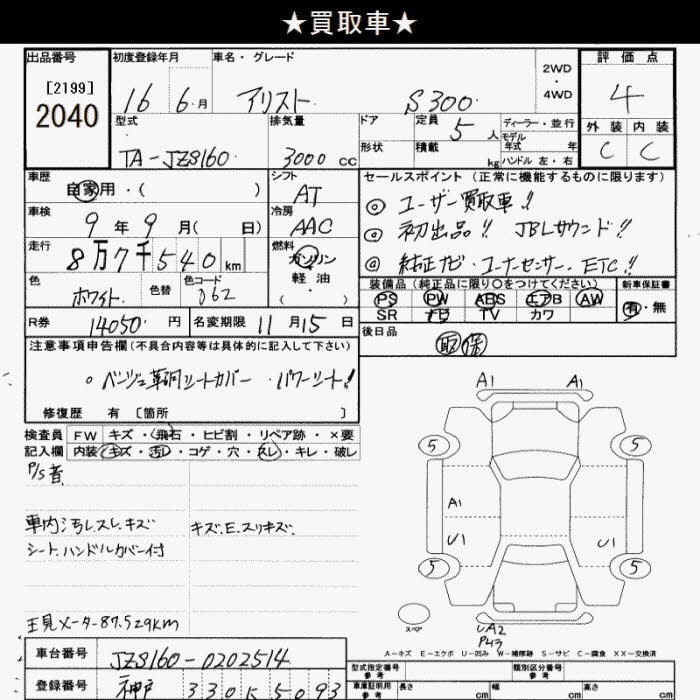 ★買取車★
出品番号
[2199]
2040
初度登録年月
16 6.月
車名・グレード
アリスト S300
2WD
・
4WD
評価点
4
外装 内装
C C
型式
TA-JZS160
排気量
3000 CC
ドア
形状
定員
5 人
積載
kg
ディーラー・並行
モデル
年式 年
ハンドル 左・右
車歴
自家用・( )
シフト
AT
車検
9 年 9 月( 日)
冷房
AAC
走行
8万7千540 km
燃料
ガソリン
軽・油
( ・ )
色
ホワイト
色替
色コード
062
R券
14050 円
名変期限 11 月 15 日
セールスポイント (正常に機能するものに限ります)
◎ ユーザー買取車!!
◎ 初出品!! JBLサウンド!!
◎ 純正ナビ・コーナーセンサー・ETC!!
装備品(純正品に限り○をつけてください)
PS PW ABS エアB AW
SR ナビ TV カワ
新車保証書
有・無
後日品
取 保
注意事項申告欄(不具合内容等は具体的に記入して下さい)
。ベージュ革調シートカバー ・パワーシート!
修復歴 有 [箇所 ]
検査員 FW キズ・飛石・ヒビ割・リペア跡・×要
記入欄 内装 キズ・汚レ・コゲ・穴・スレ・キレ・破レ
P/S音
車内汚レ.スレ.キズ
キズ.E.スリキズ.
シート.ハンドルカバー付
現メーター87.529KM
A1 A1
5 5
A1
U1 U1
5 5
スペア
UA2
A-キズ E-エクボ U-凹み W-補修跡 S-サビ C-腐食 XX-交換済
車台番号
JZS160-0202514
登録番号
神戸 330 5093
型式指定番号
参考
類別区分番号
参考
車庫証明用
参考
長さ cm
幅 cm
高さ cm